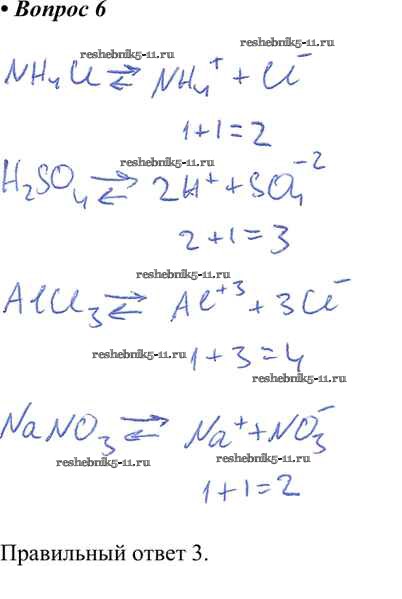 • Вопрос 6
reshebnik5-11.ru
NH₄Cl ⇄ NH₄⁺ + Cl⁻
1+1=2
reshebnik5-11.ru
H₂SO₄ ⇄ 2H⁺ + SO₄⁻²
2+1=3
reshebnik5-11.ru
AlCl₃ ⇄ Al⁺³ + 3Cl⁻
reshebnik5-11.ru
1+3=4
reshebnik5-11.ru
NaNO₃ ⇄ Na⁺ + NO₃⁻
reshebnik5-11.ru
reshebnik5-11.ru
1+1=2
Правильный ответ 3.